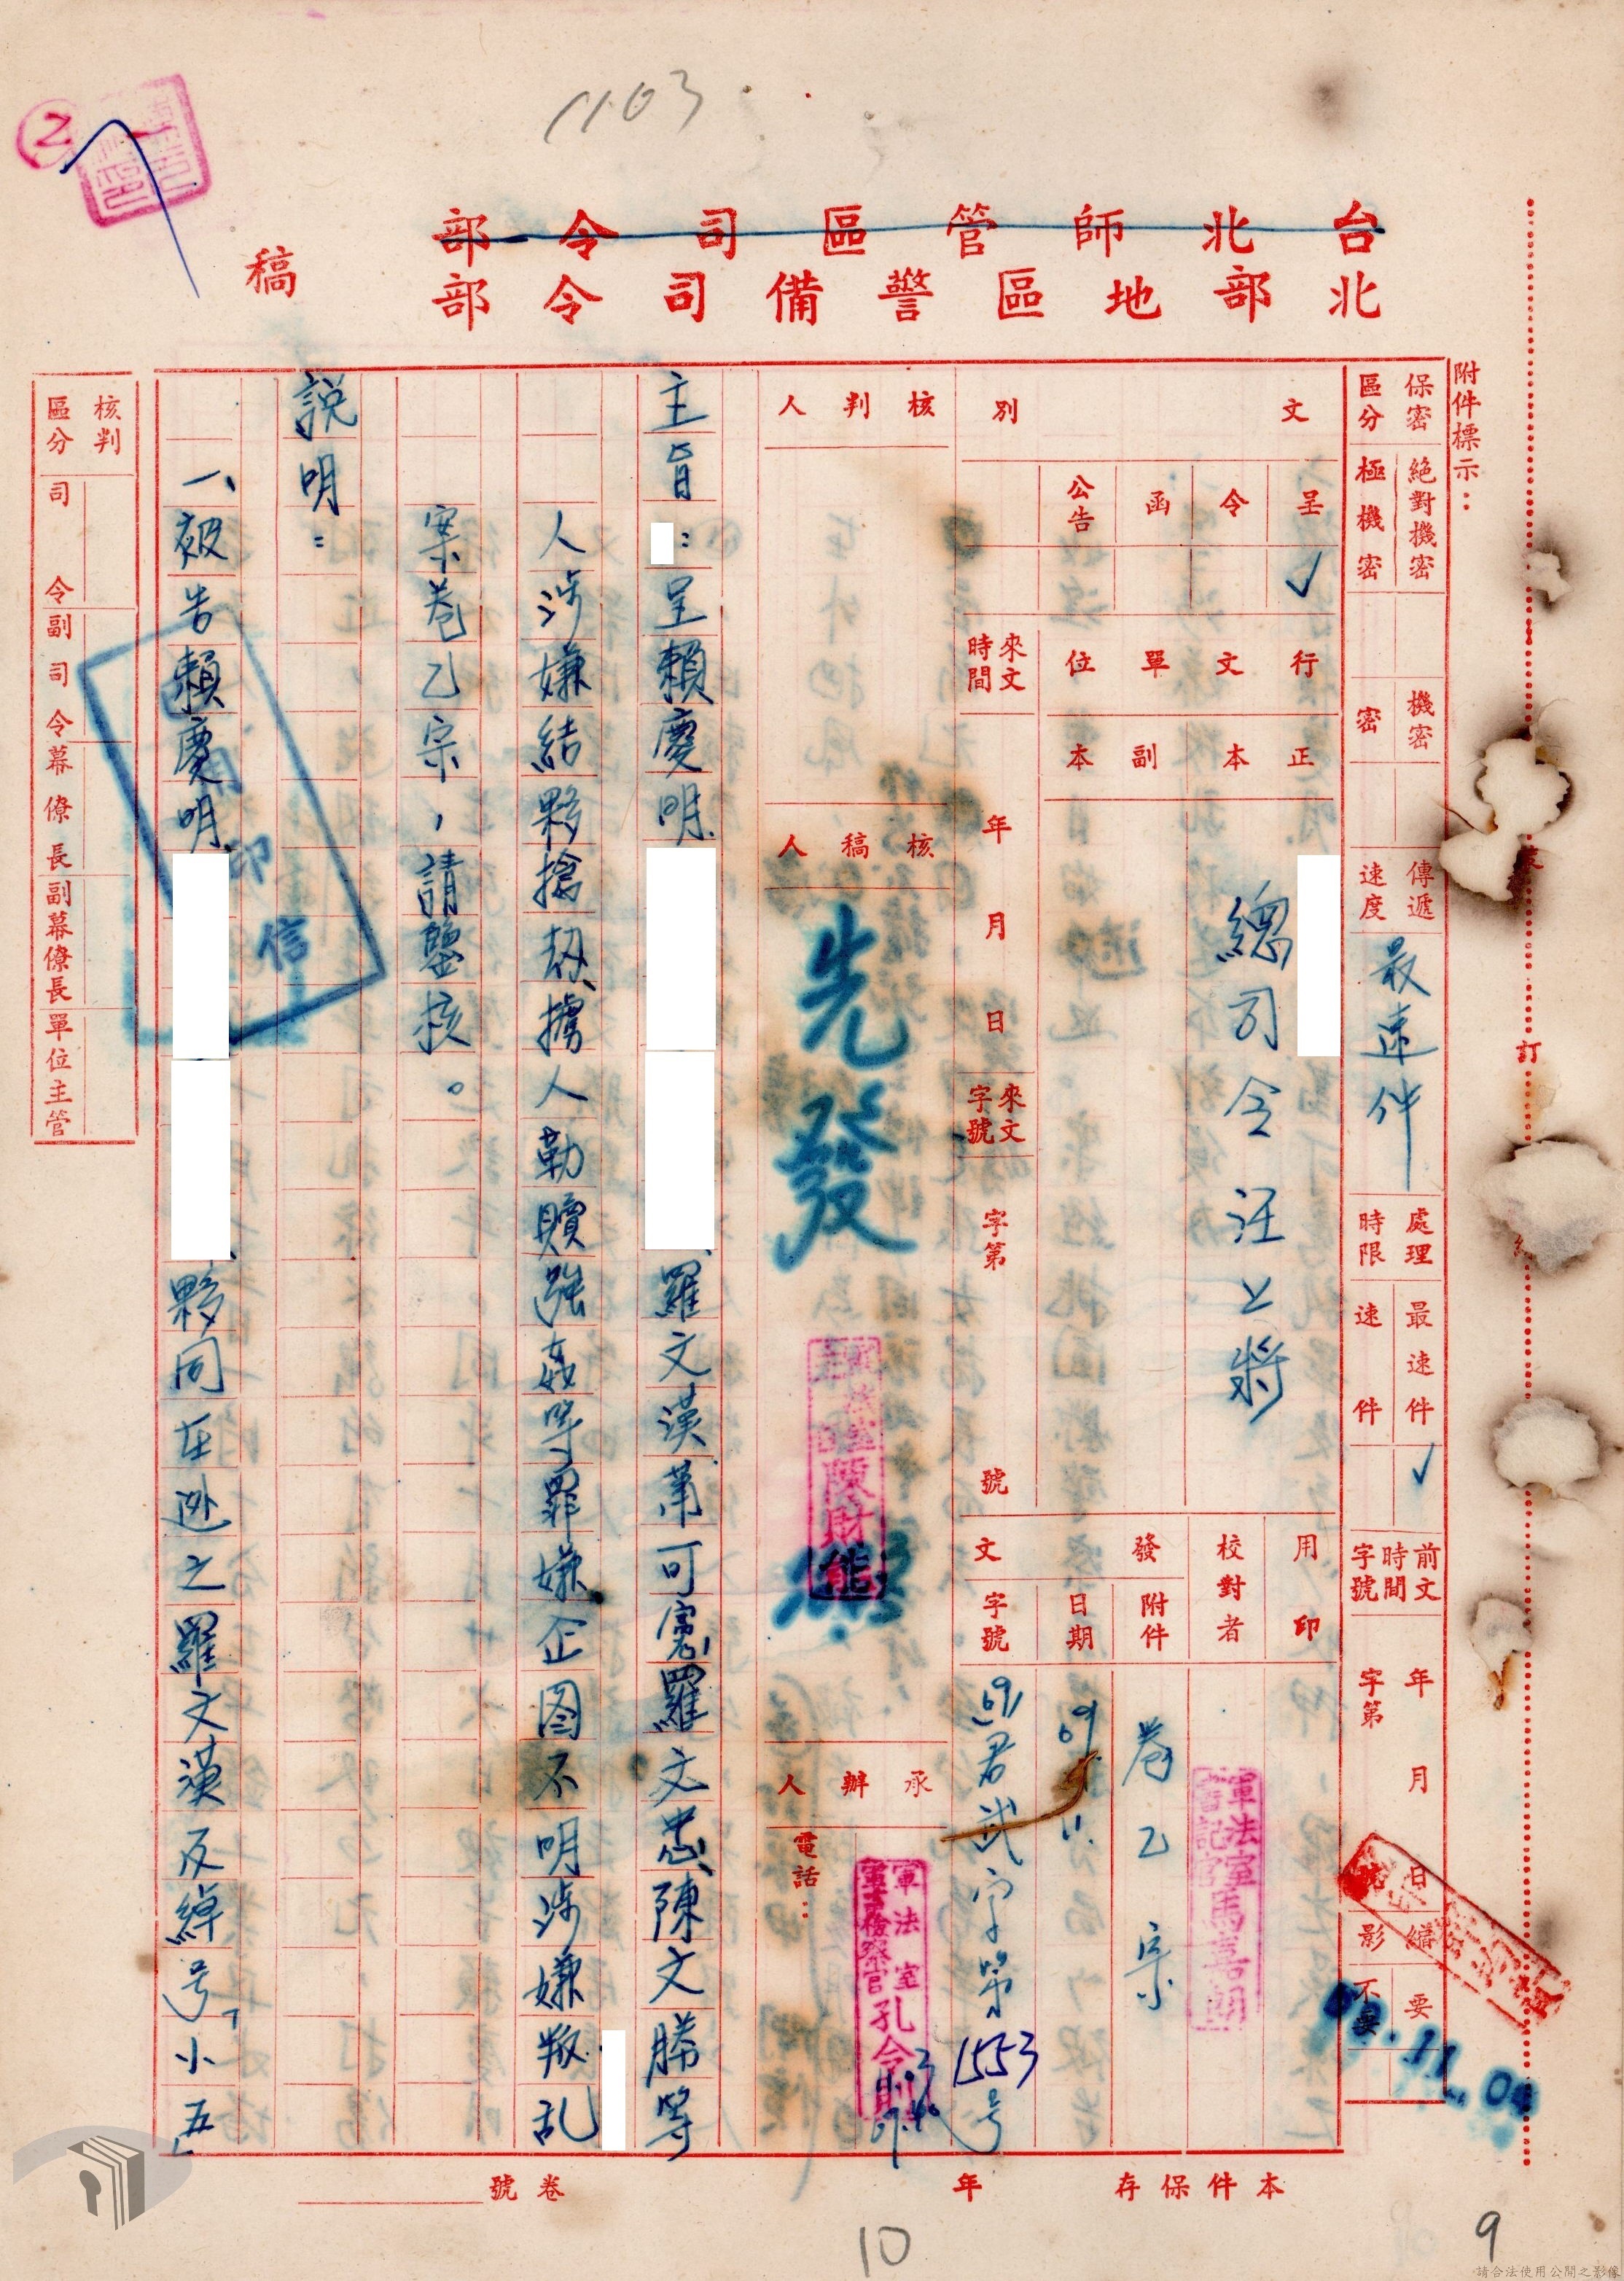 1103
2
台北師管區司令部
北部地區警備司令部
稿
附件標示：
保密區分
絕對機密
極機密
機密
密
傳遞速度
最速件
處理時限
最速件 ✓
速件
前文時間字號
年 月 日
字第 號
縮影
要
不要
文別
呈 ✓
令
函
公告
行文單位
正本
副本
總司令汪上將
來文時間
年 月 日
來文字號
字第 號
用印
校對者
軍法室書記官馬嘉朗
發文
附件
卷乙宗
日期
69. 11.
字號
69君武字第1553号
69.11.04
核判人
核稿人
先發
陳財能
承辦人
軍法室
軍事檢察官孔令則
電話：
主旨：呈賴慶明、羅文漢、蕭可憲、羅文忠、陳文勝等
人涉嫌結夥搶刧、擄人勒贖、強姦等罪嫌、企图不明涉嫌叛乱
案卷乙宗，請鑒核。
說明：
一、被告賴慶明、夥同在逃之羅文漢及綽号「小五」
印信
核判區分
司令
副司令
幕僚長
副幕僚長
單位主管
訂
本件保存 年
卷號
10
9
請合法使用公開之影像